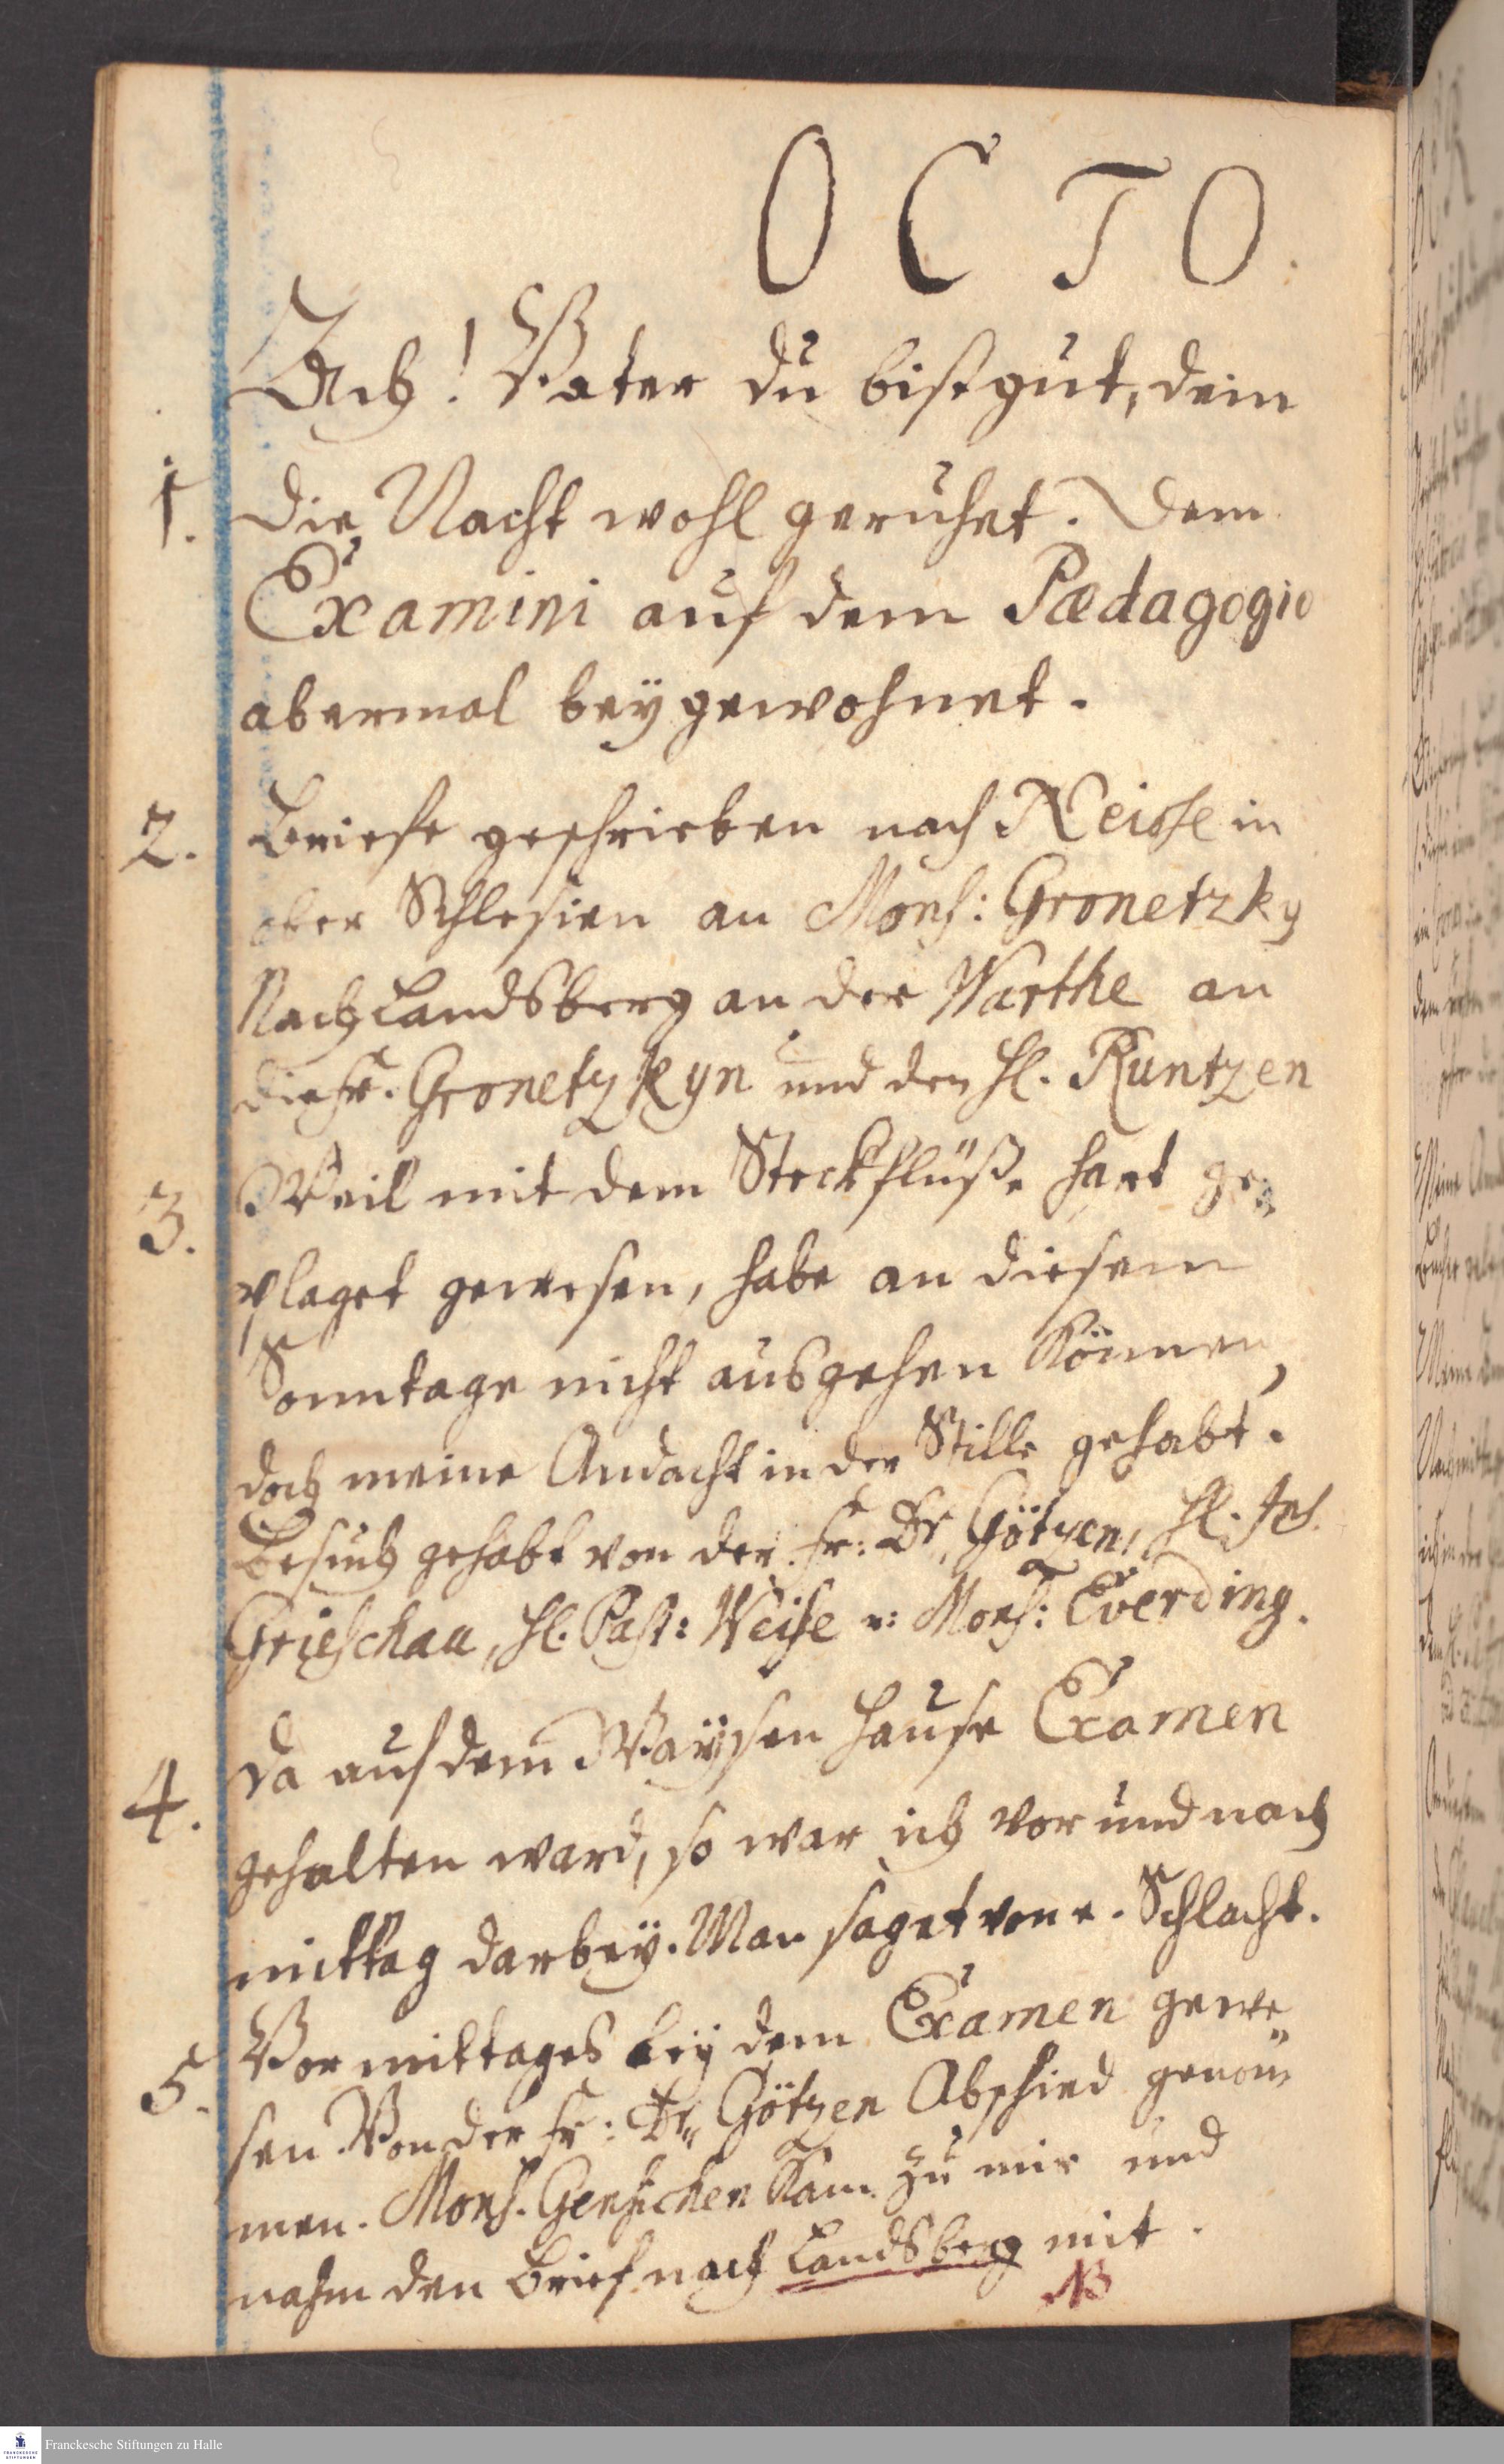 OCTO.
Ach! Vater du bist gut, dein
1. Die Nacht wohl geruhet. Dem
Examini auf dem Pædagogio
abermal beygewohnet.
2. Briefe geschrieben nach Neisse in
ober Schlesien an Mons: Gronetzky
Nach Landsberg an der Warthe an
die Fr. Gronetzkyn und den Hl. Runtzen
3. Weil mit dem Steckflüße hart ge=
plaget gewesen, habe an diesem
Sonntage nicht ausgehen können,
doch meine Andacht in der Stille gehabt.
Besuch gehabt von der Fr: Dr. Götzen, Hl.
Grieschau, Hl. Past: Weise u: Mons: Everding.
4. Da auf dem Waÿsen Hause Examen
gehalten ward, so war ich vor und nach
mittag darbeÿ. Man saget von e. Schlacht.
5. Vor mittages beÿ dem Examen gewe=
sen. Von der Fr: Dr. Götzen Abschied genom̄
men. Mons. Gensichen kam zu mir und
nahm den Brief nach Landsberg mit.
NB
Franckesche Stiftungen zu Halle